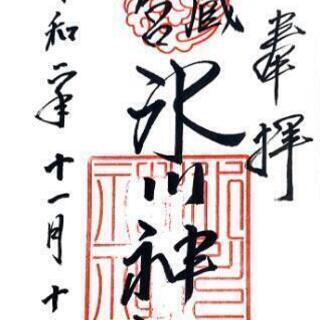 奉拝
蔵
宮
氷川神
和二年十一月十